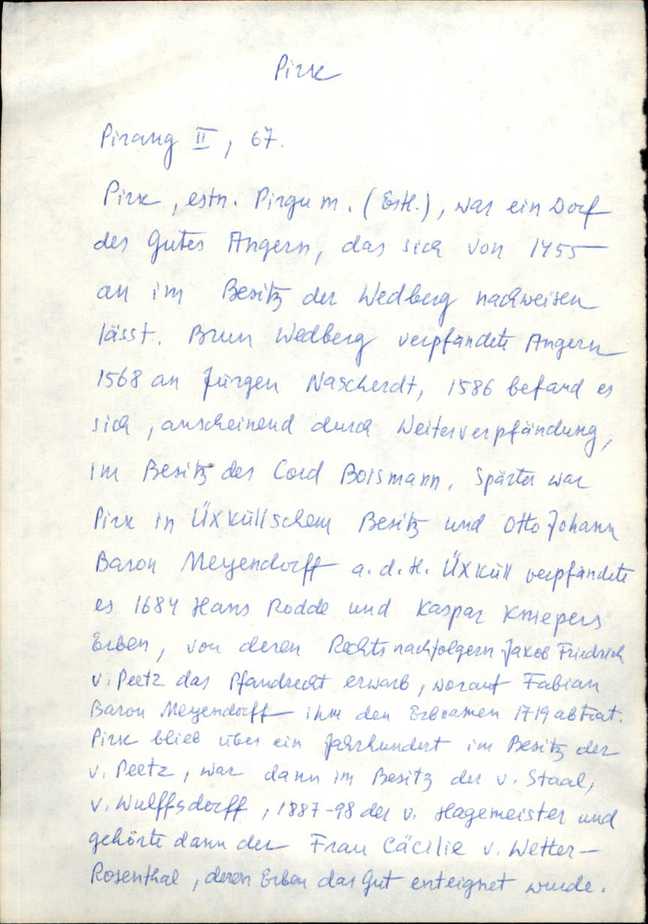 Pirk
Pirang II, 67.
Pirk, estn. Pirgu m. (Estl.), war ein Dorf
des Gutes Angern, das sich von 1455
an im Besitz der Wedberg nachweisen
lässt. Brun Wedberg verpfändete Angern
1568 an Jürgen Nascherdt, 1586 befand es
sich, anscheinend durch Weiterverpfändung,
im Besitz des Cord Boismann. Später war
Pirk in Üxküllschem Besitz und Otto Johann
Baron Meyendorff a.d.H. Üxküll verpfändete
es 1684 Hans Rodde und Kaspar Kniepers
Erben, von deren Rechtsnachfolgern Jakob Friedrich
v. Peetz das Pfandrecht erwarb, worauf Fabian
Baron Meyendorff ihm den 1719 abtrat.
Pirk blieb über ein Jahrhundert im Besitz der
v. Peetz, war dann im Besitz der v. Staal,
v. Wulffsdorff, 1887-98 der v. Hagemeister und
gehörte dann der Frau Cäcilie v. Wetter-
Rosenthal, deren Erben das Gut enteignet wurde.